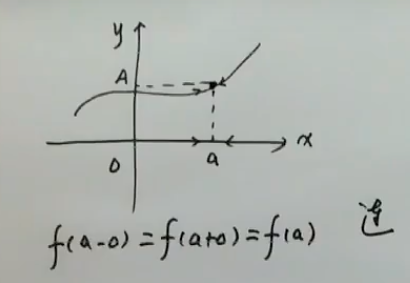 y
A
0
a
x
f(a-0)=f(a+0)=f(a)